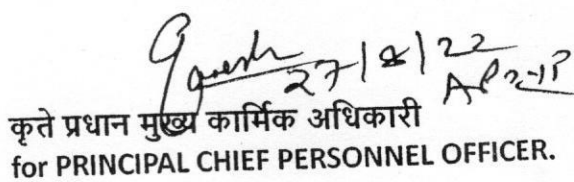 Ganesh
27/8/22
कृते प्रधान मुख्य कार्मिक अधिकारी
for PRINCIPAL CHIEF PERSONNEL OFFICER.